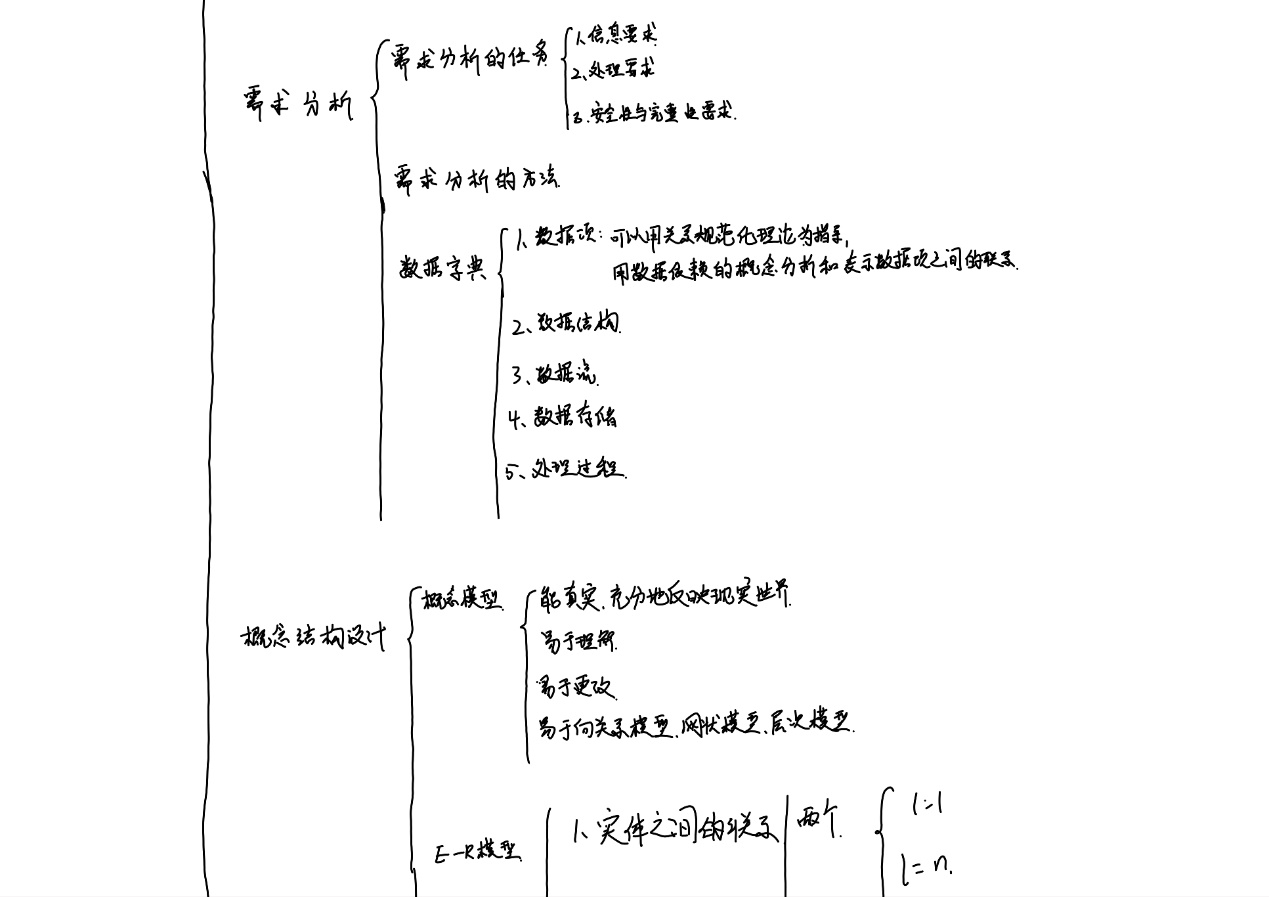 需求分析
需求分析的任务
1、信息要求
2、处理要求
3、安全性与完整性要求.
需求分析的方法.
数据字典
1、数据项：可以用关系规范化理论为指导,
用数据依赖的概念分析和表示数据项之间的联系.
2、数据结构.
3、数据流.
4、数据存储
5、处理过程.
概念结构设计
概念模型.
能真实、充分地反映现实世界.
易于理解.
易于更改.
易于向关系模型、网状模型、层次模型.
E-R模型.
1、实体之间的联系
两个.
1:1
1:n.